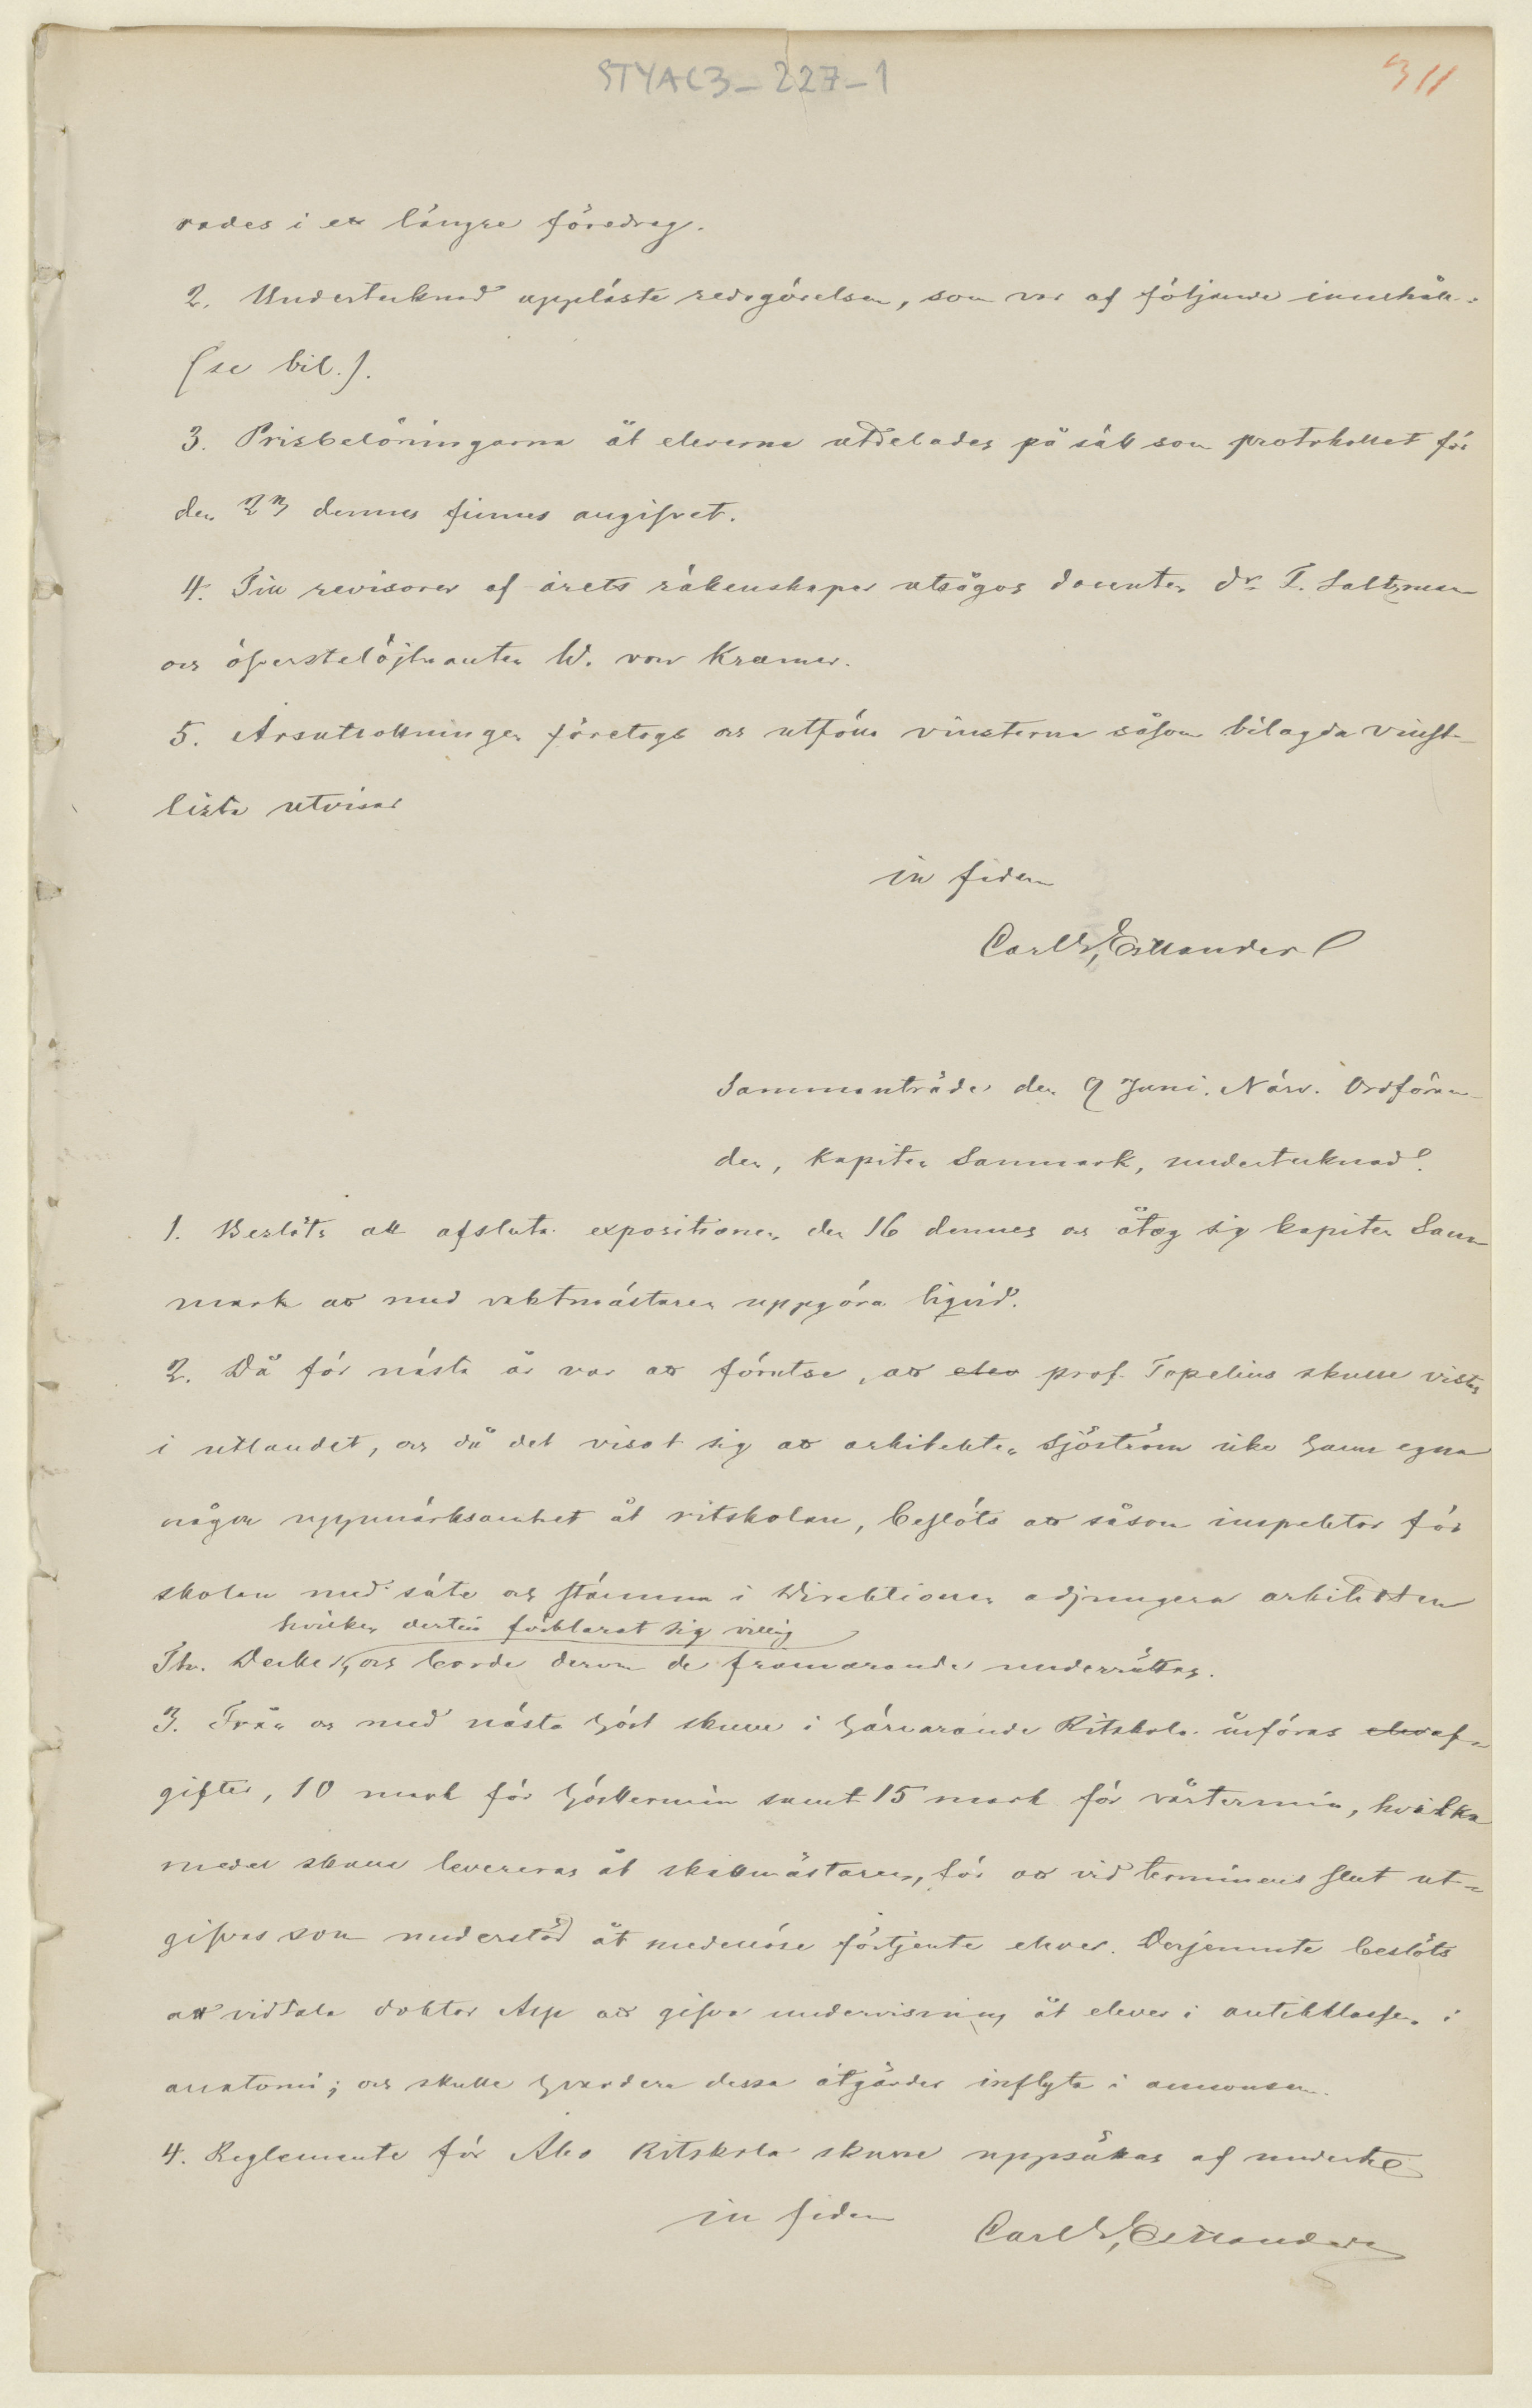 STYAC3-227-1
311
rades i ett längre föredrag.
2. Undertecknad uppläste redogörelsen, som var af följande innehåll:
(se bil.).
3. Prisbelöningarna åt eleverna utdelades på sätt som protokollet för
den 23 dennes finnes angifvet.
4. Till revisorer af årets räkenskaper utsågos docenten dr F. Saltzman
och öfverstelöjtnanten W. von Kræmer.
5. Årsutlottningen företogs och utföllo vinsterna såsom bilagda vinst-
lista utvisar
in fidem
Carl G. Estlander
Sammanträde den 9 Juni. Närv. Ordföran-
den, kapiten Sanmark, undertecknad.
1. Beslöts att afsluta expositionen den 16 dennes och åtog sig kapiten San-
mark att med vaktmästaren uppgöra liqvid.
2. Då för nästa år var att förutse, att elev prof. Topelius skulle vistas
i utlandet, och då det visat sig att arkitekten Sjöström icke hann egna
någon uppmärksamhet åt ritskolan, beslöts att såsom inspektor för
skolan med säte och stämma i Direktionen adjungera arkitekten
hvilken dertill förklarat sig villig
Th. Decker, och borde derom de frånvarande underrättas.
3. Från och med nästa höst skulle i härvarande Ritskola införas elevaf-
gifter, 10 mark för hösttermin samt 15 mark för vårtermin, hvilka
medel skulle levereras åt skattmästaren, för att vid terminens slut ut-
gifvas som understöd åt medellöse förtjente elever. Derjemnte beslöts
att vidtala doktor Asp att gifva undervisning åt elever i antikklassen i
anatomi; och skulle hvardera dessa åtgärder inflyta i annonsen.
4. Reglemente för Åbo Ritskola skulle uppsättas af undert.
in fidem Carl G. Estlander